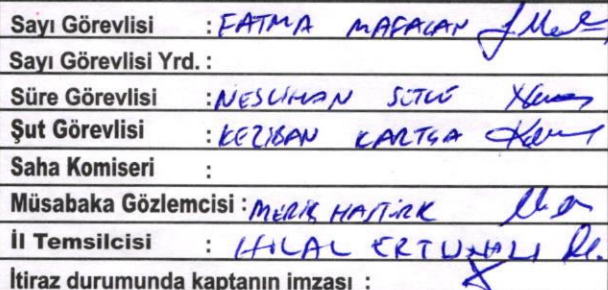 Sayı Görevlisi : FATMA MAFALAN
Sayı Görevlisi Yrd. :
Süre Görevlisi : NESLİHAN SÜTLÜ
Şut Görevlisi : KEZİBAN
Saha Komiseri :
Müsabaka Gözlemcisi : MERİÇ HAŞTÜRK
İl Temsilcisi : HİLAL
İtiraz durumunda kaptanın imzası :